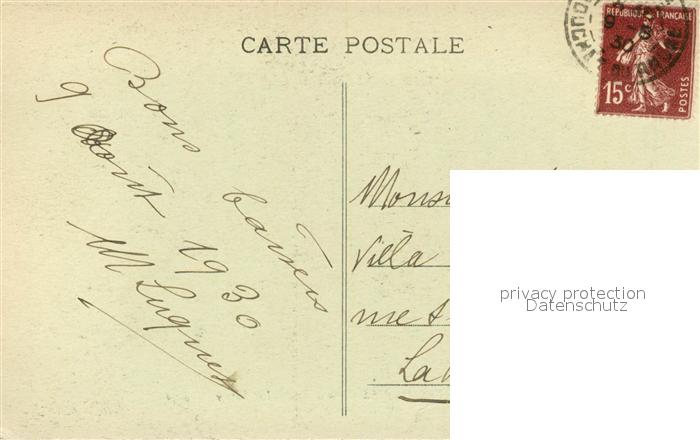 CARTE POSTALE
REPUBLIQUE FRANÇAISE
15c
POSTES
9 8
30
Bons baisers
9 Août
1930
M Luquet
Villa
privacy protection
Datenschutz